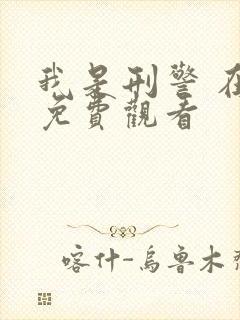 我是刑警 在
免費觀看
喀什-烏魯木齊